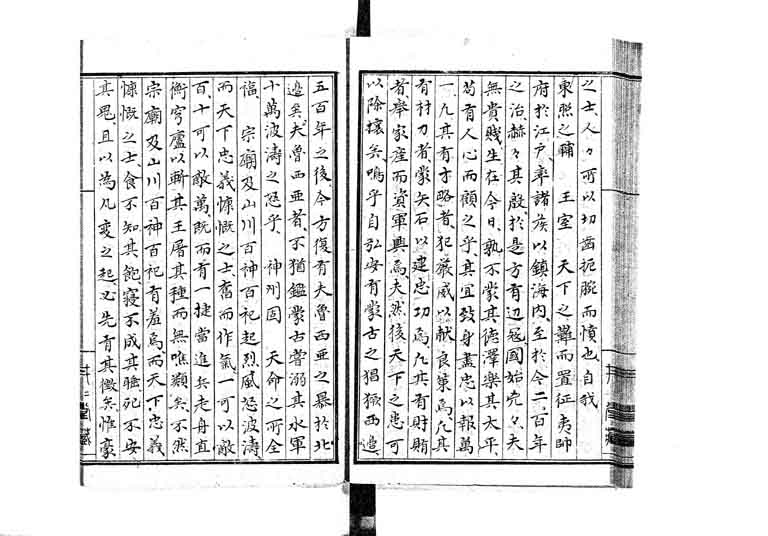 之士人々所以切齒扼腕而憤也自我
東照之輔 王室 天下之而置征夷帥
府於江戶率諸族以鎮海內至於今二百年
之治赫々其啟於是方有辺冦國始々夫
無貴賤生在今日孰不蒙其徳澤樂其太平
苟有人心而顧之乎其宜致身盡忠以報萬
一凡其有才略者犯嚴威以献良策焉凡其
有材力者蒙矢石以建忠功焉凡其有財賄
者舉家産而資軍興焉夫然後天下之患可
以除攘矣嗚乎自弘安有蒙古之猖獗西邉
五百年之後今方復有夫魯西亜之暴於北
邉矣夫魯西亜者不猶鑑蒙古嘗溺其水軍
十萬波濤之怒乎 神州固 天命之所全
福 宗廟及山川百神百祀起烈風怒波濤
而天下忠義慷慨之士奮而作氣一可以敵
百十可以敵萬既而有一捷當進兵走舟直
衝穹廬以斬其王屠其種而無唯類矣不然
宗廟及山川百神百祀有羞焉而天下忠義
慷慨之士食不知其飽寢不成其睡死不安
其鬼且以為凡変之起必先有其徴矣惟豪